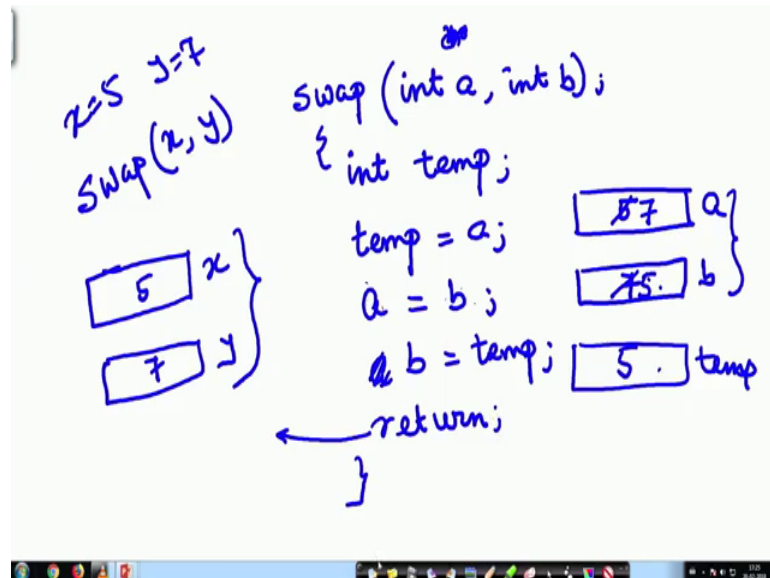 x=5 y=7
swap(x, y)
5 x
7 y
swap (int a, int b);
{ int temp;
temp = a;
a = b;
b = temp;
return;
}
57 a
75. b
5. temp
17:25